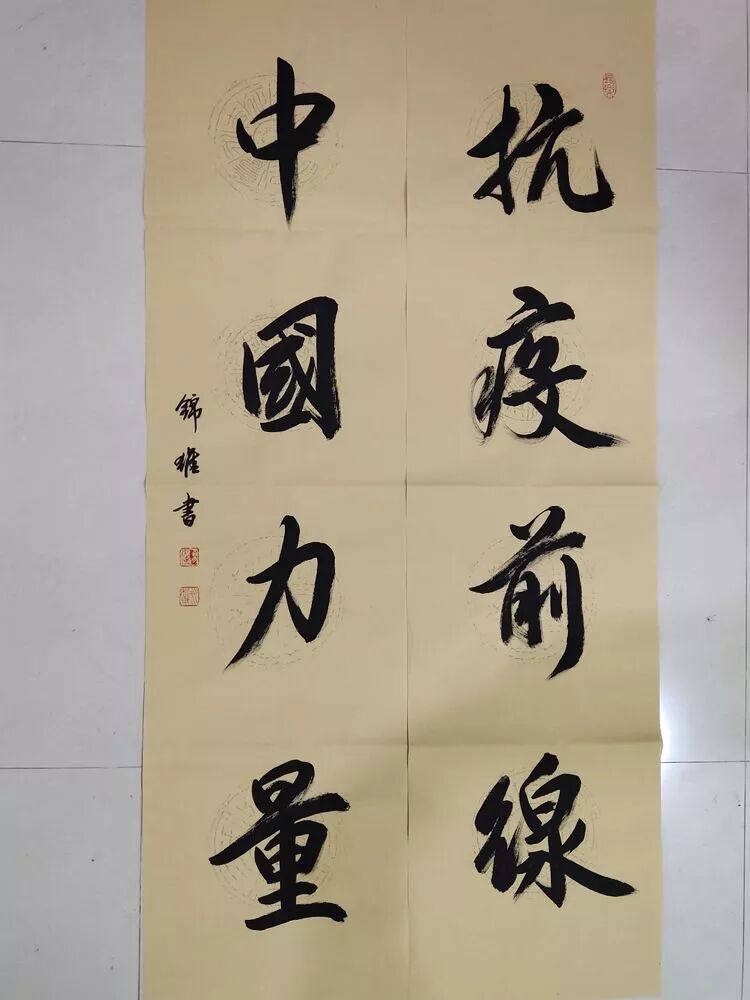 抗疫前線
中國力量
錦雄書